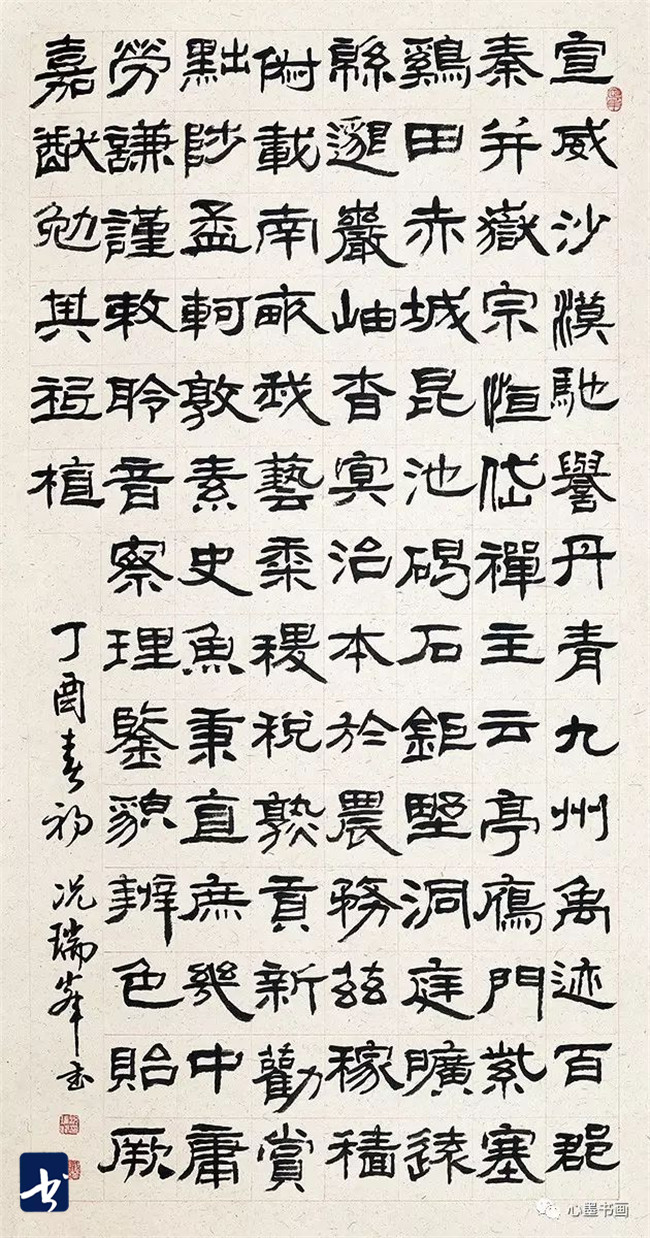 宣威沙漠馳譽丹青九州禹迹百郡
秦并嶽宗恒岱禪主云亭鴈門紫塞
鷄田赤城昆池碣石鉅野洞庭曠遠
緜邈巖岫杳冥治本於農務茲稼穡
俶載南畝我藝黍稷稅熟貢新勸賞
黜陟孟軻敦素史魚秉直庶幾中庸
勞謙謹敕聆音察理鑒貌辨色貽厥
嘉猷勉其祗植
丁酉春初 况瑞峯书
书
心墨书画